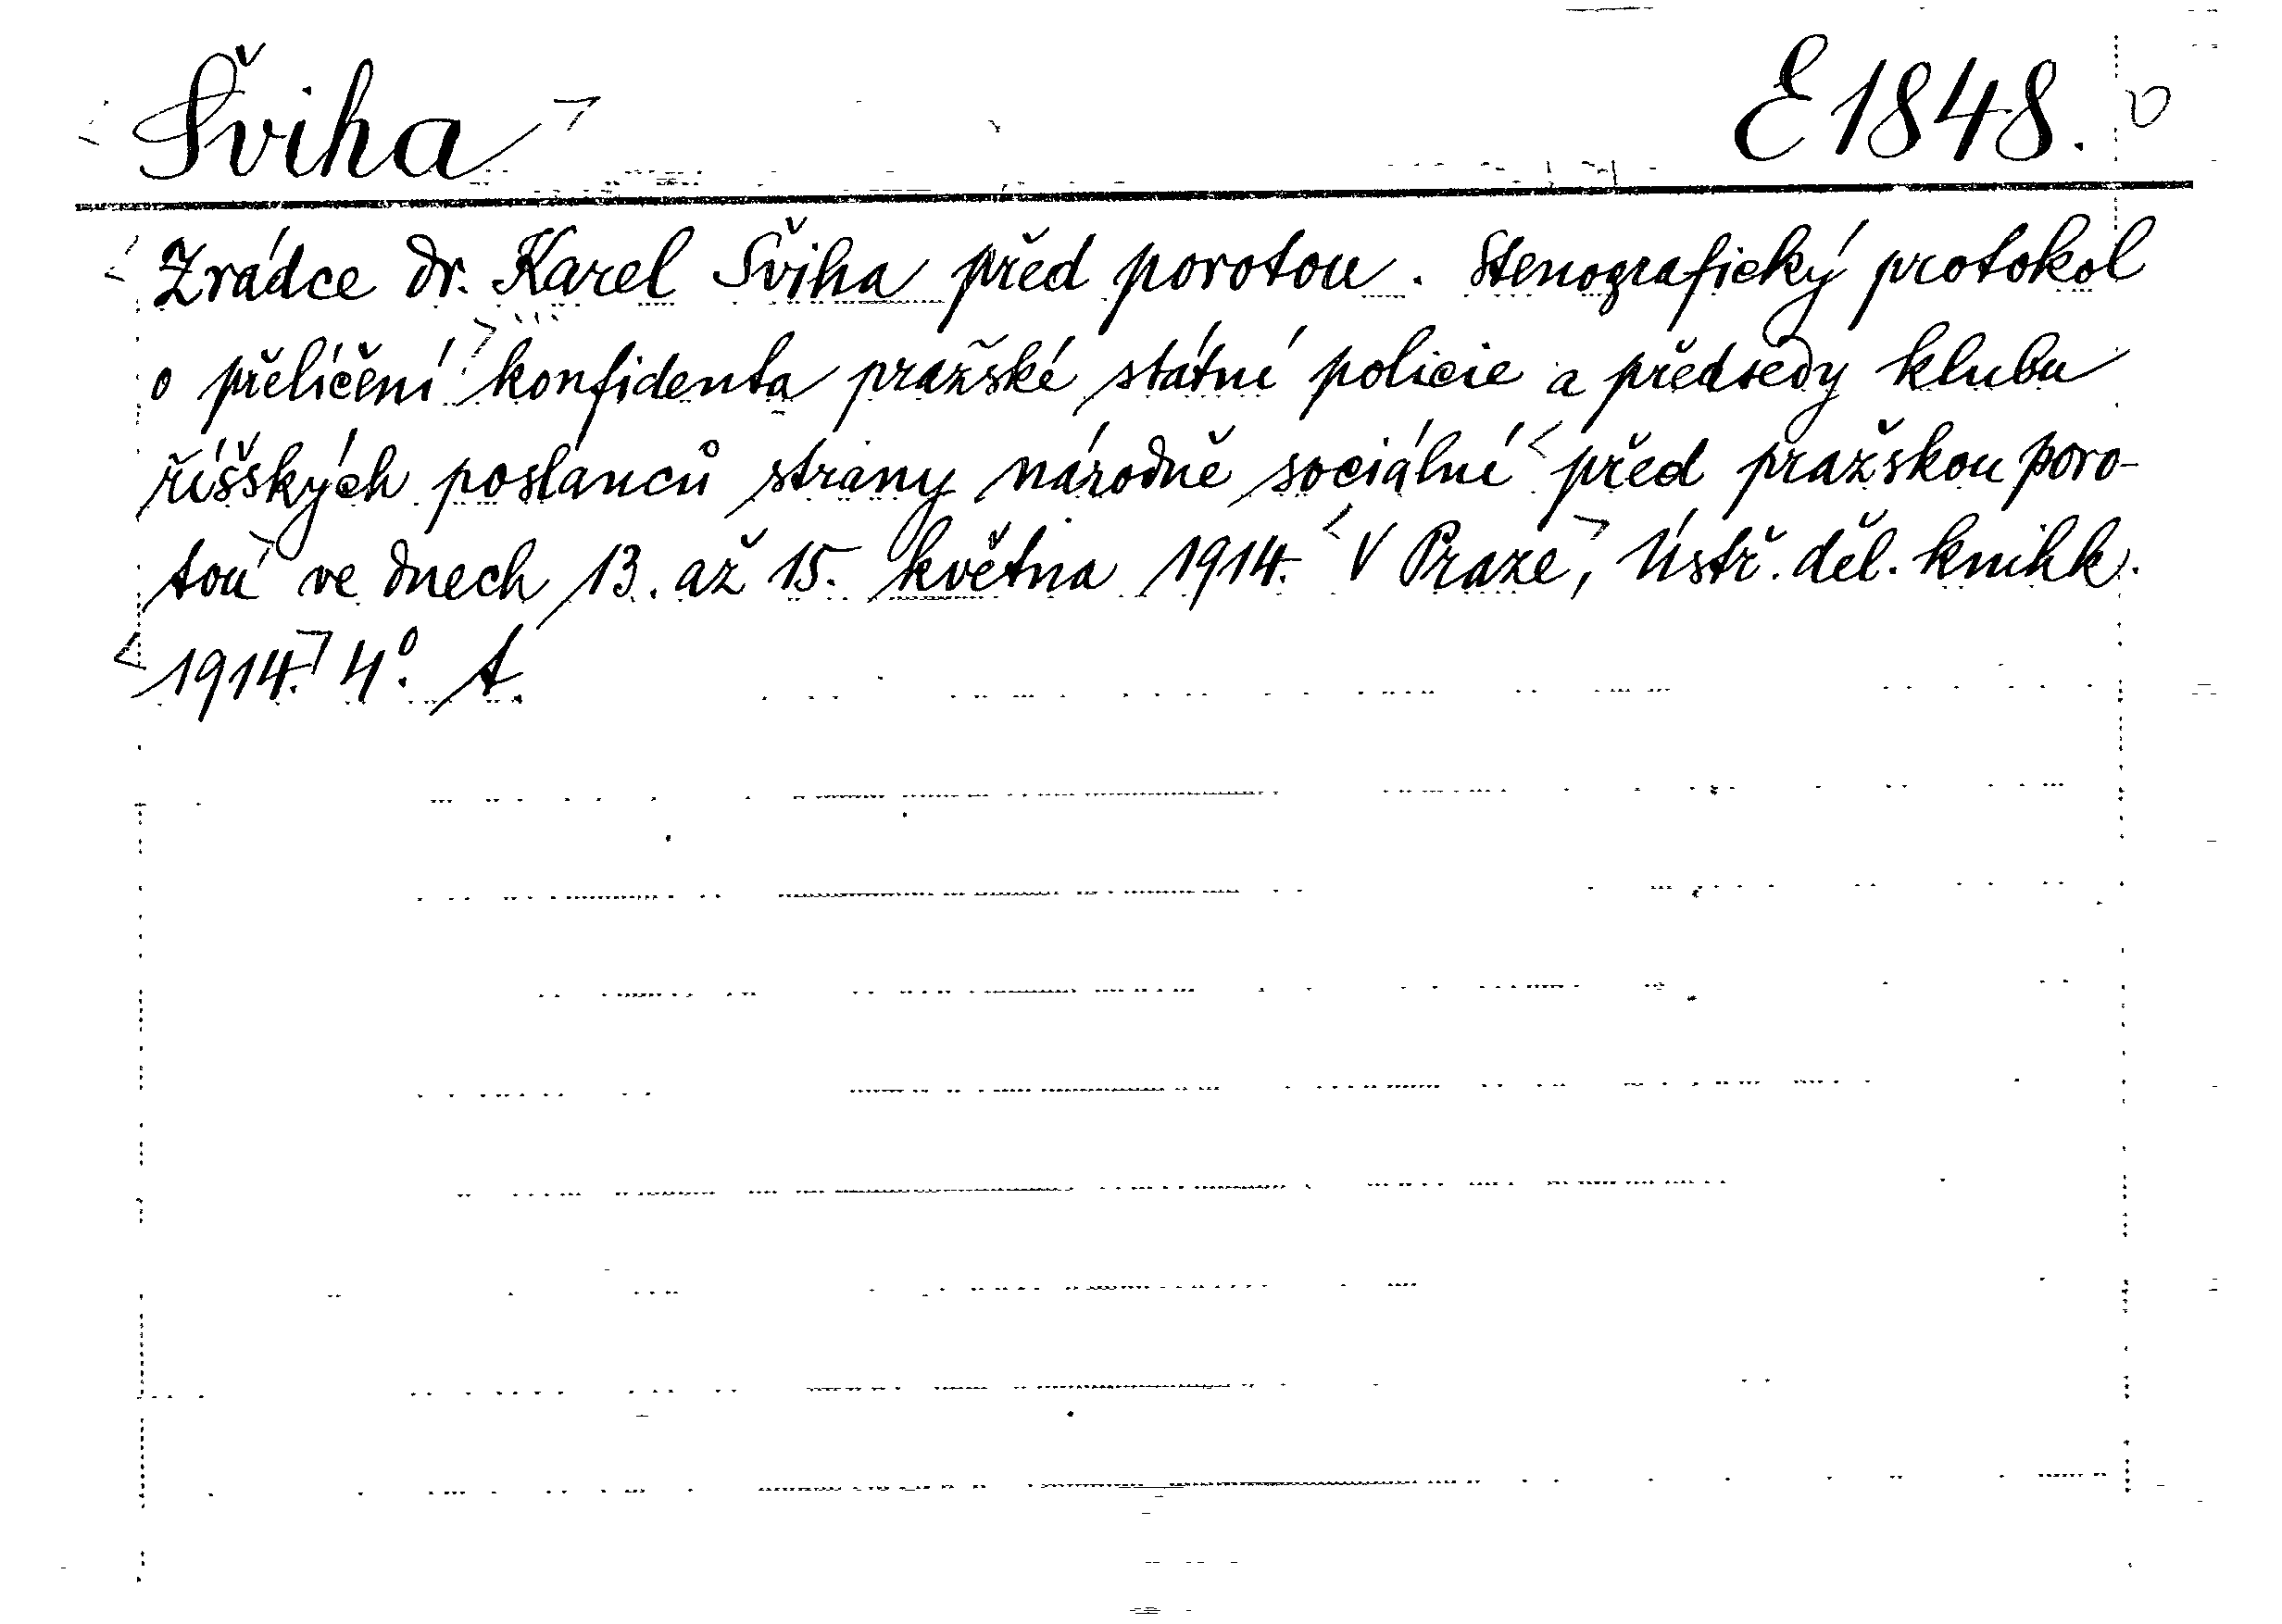 Šviha
E 1848.
Zrádce dr. Karel Šviha před porotou. Stenografický protokol
o přelíčení konfidenta pražské státní policie a předsedy klubu
říšských poslanců strany národně sociální před pražskou poro-
tou ve dnech 13. až 15. května 1914. V Praze, Ústř. děl. knihk.
1914. 4°. A.